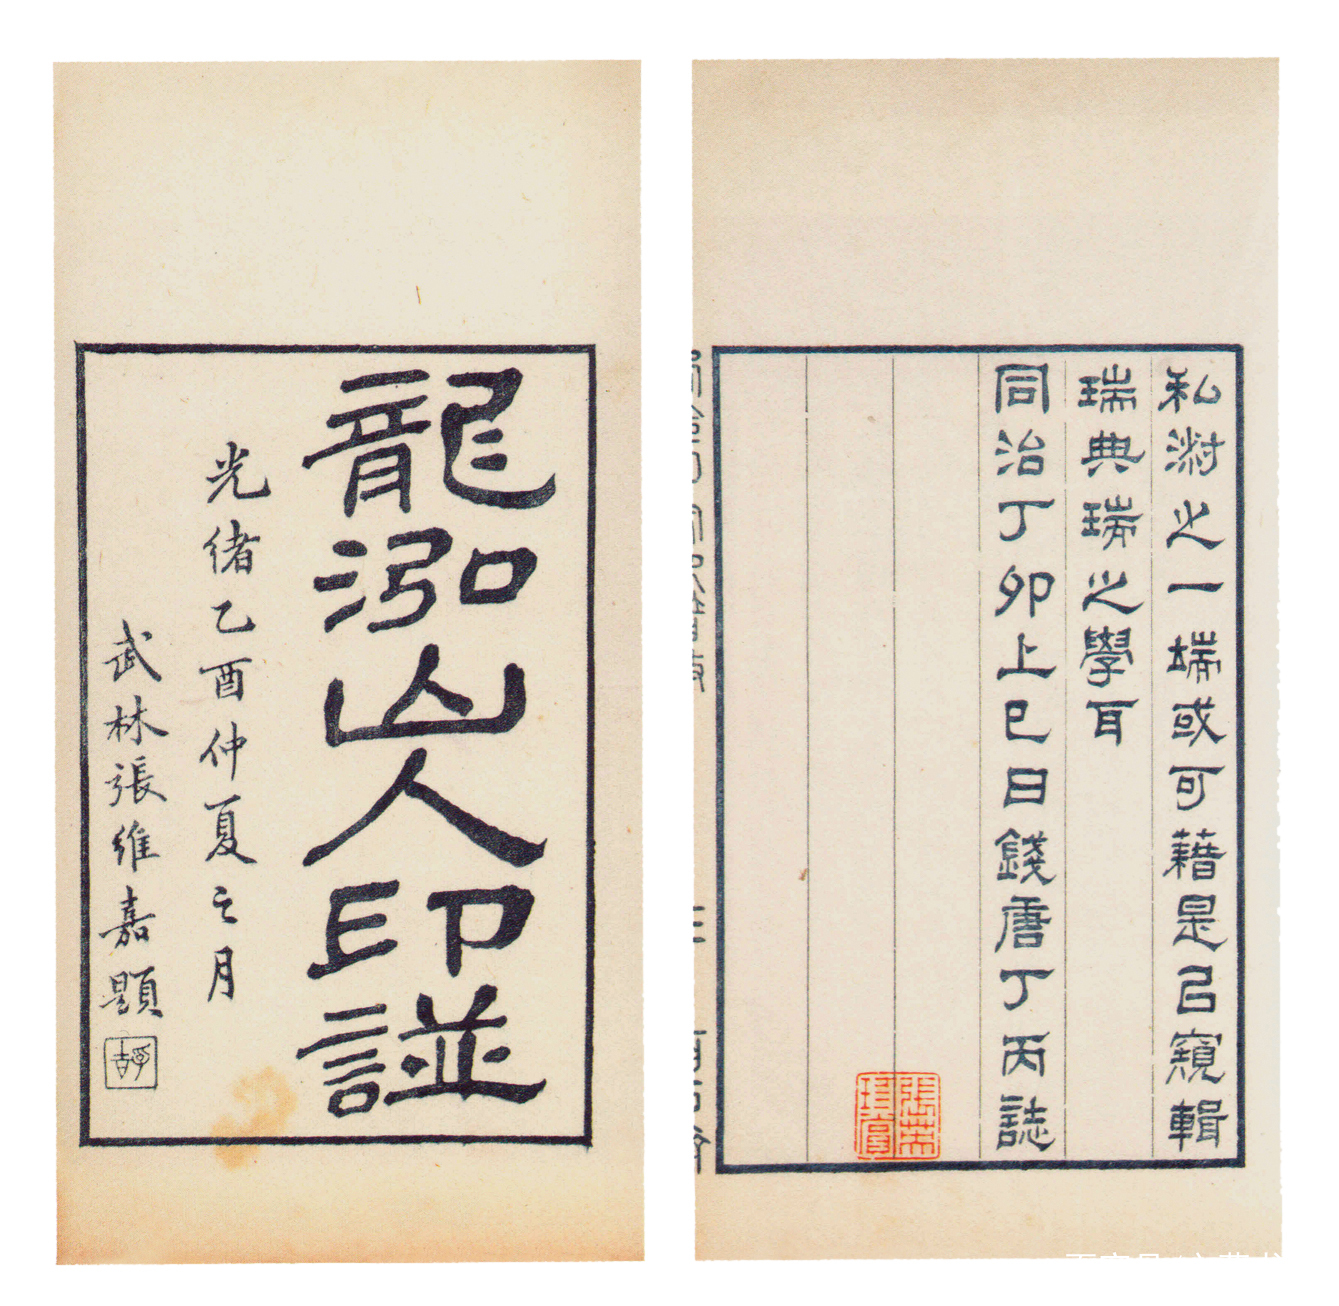 龍泓山人印諩
光緒乙酉仲夏之月
武林張維嘉題
私淑之一端或可藉是㠯窺輯
瑞典瑞之學耳
同治丁卯上巳日錢唐丁丙誌